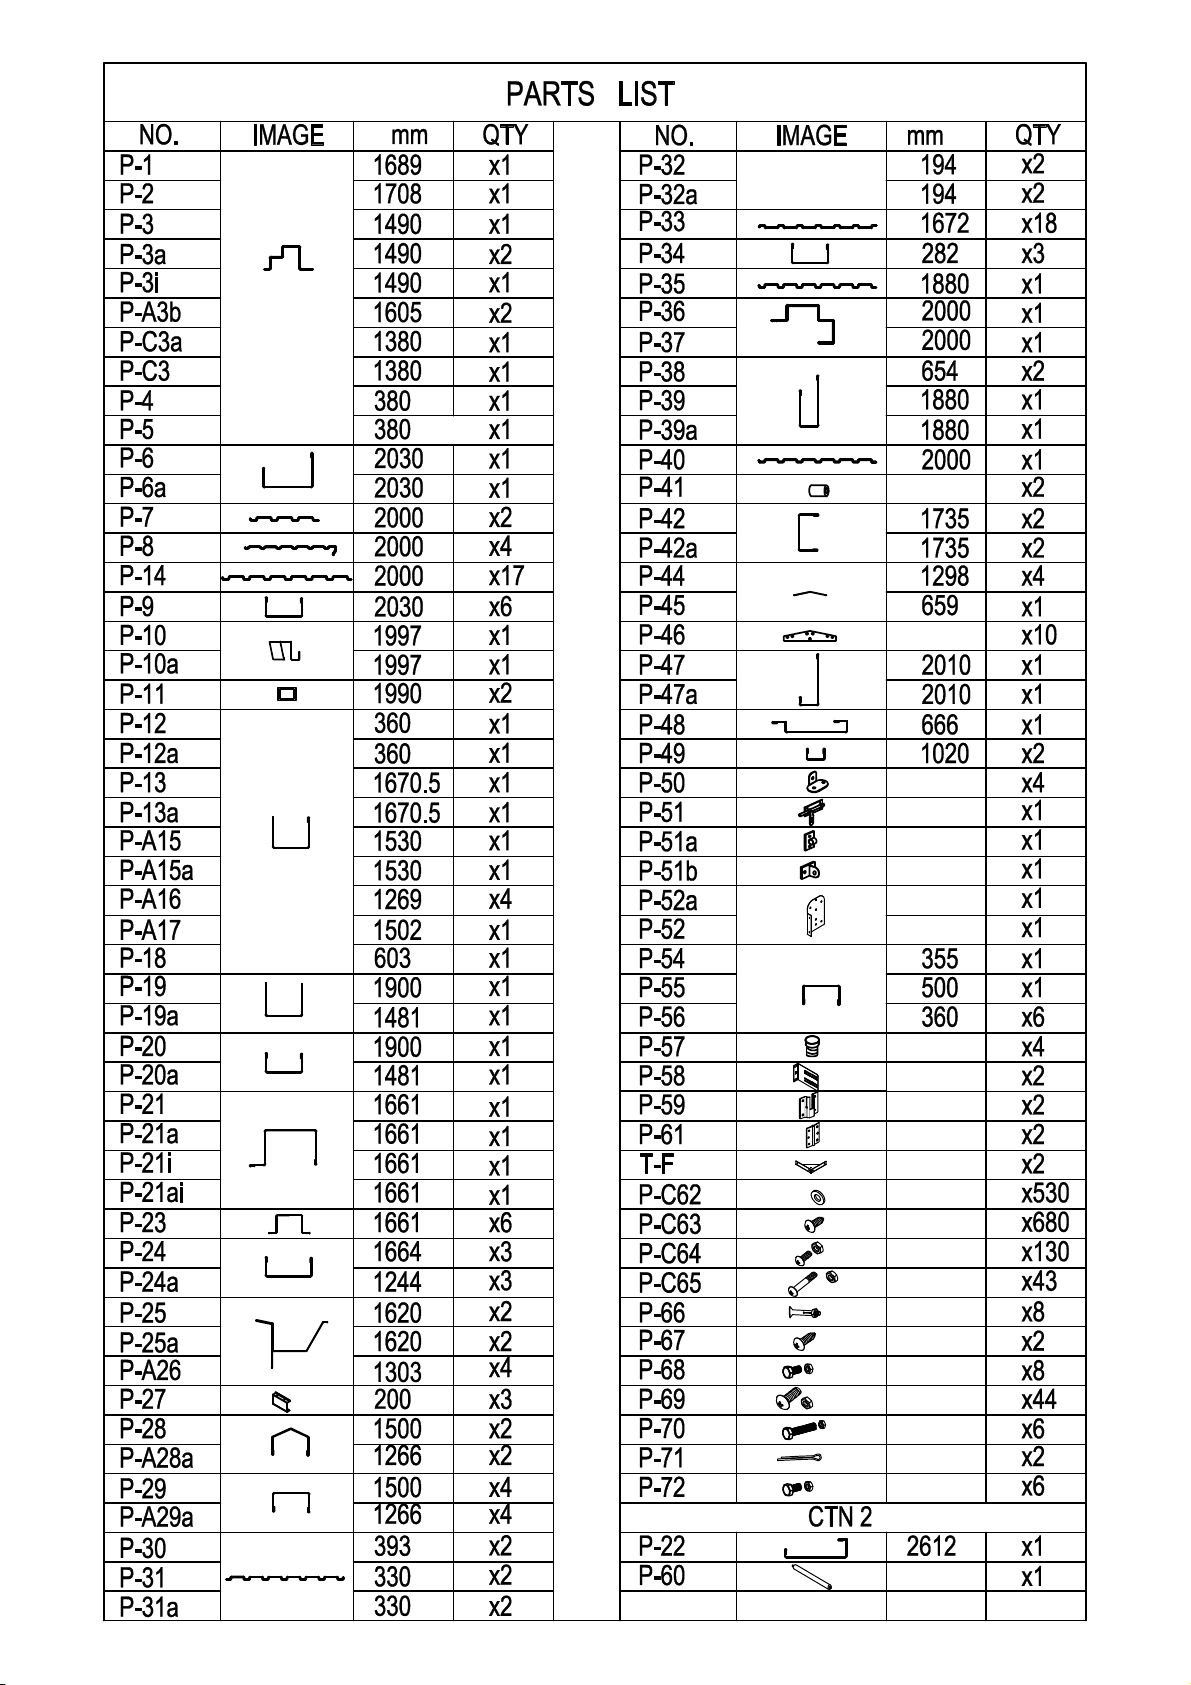 PARTS LIST
NO. IMAGE mm QTY
P-1 1689 x1
P-2 1708 x1
P-3 1490 x1
P-3a 1490 x2
P-3i 1490 x1
P-A3b 1605 x2
P-C3a 1380 x1
P-C3 1380 x1
P-4 380 x1
P-5 380 x1
P-6 2030 x1
P-6a 2030 x1
P-7 2000 x2
P-8 2000 x4
P-14 2000 x17
P-9 2030 x6
P-10 1997 x1
P-10a 1997 x1
P-11 1990 x2
P-12 360 x1
P-12a 360 x1
P-13 1670.5 x1
P-13a 1670.5 x1
P-A15 1530 x1
P-A15a 1530 x1
P-A16 1269 x4
P-A17 1502 x1
P-18 603 x1
P-19 1900 x1
P-19a 1481 x1
P-20 1900 x1
P-20a 1481 x1
P-21 1661 x1
P-21a 1661 x1
P-21i 1661 x1
P-21ai 1661 x1
P-23 1661 x6
P-24 1664 x3
P-24a 1244 x3
P-25 1620 x2
P-25a 1620 x2
P-A26 1303 x4
P-27 200 x3
P-28 1500 x2
P-A28a 1266 x2
P-29 1500 x4
P-A29a 1266 x4
P-30 393 x2
P-31 330 x2
P-31a 330 x2
NO. IMAGE mm QTY
P-32 194 x2
P-32a 194 x2
P-33 1672 x18
P-34 282 x3
P-35 1880 x1
P-36 2000 x1
P-37 2000 x1
P-38 654 x2
P-39 1880 x1
P-39a 1880 x1
P-40 2000 x1
P-41 x2
P-42 1735 x2
P-42a 1735 x2
P-44 1298 x4
P-45 659 x1
P-46 x10
P-47 2010 x1
P-47a 2010 x1
P-48 666 x1
P-49 1020 x2
P-50 x4
P-51 x1
P-51a x1
P-51b x1
P-52a x1
P-52 x1
P-54 355 x1
P-55 500 x1
P-56 360 x6
P-57 x4
P-58 x2
P-59 x2
P-61 x2
T-F x2
P-C62 x530
P-C63 x680
P-C64 x130
P-C65 x43
P-66 x8
P-67 x2
P-68 x8
P-69 x44
P-70 x6
P-71 x2
P-72 x6
CTN 2
P-22 2612 x1
P-60 x1